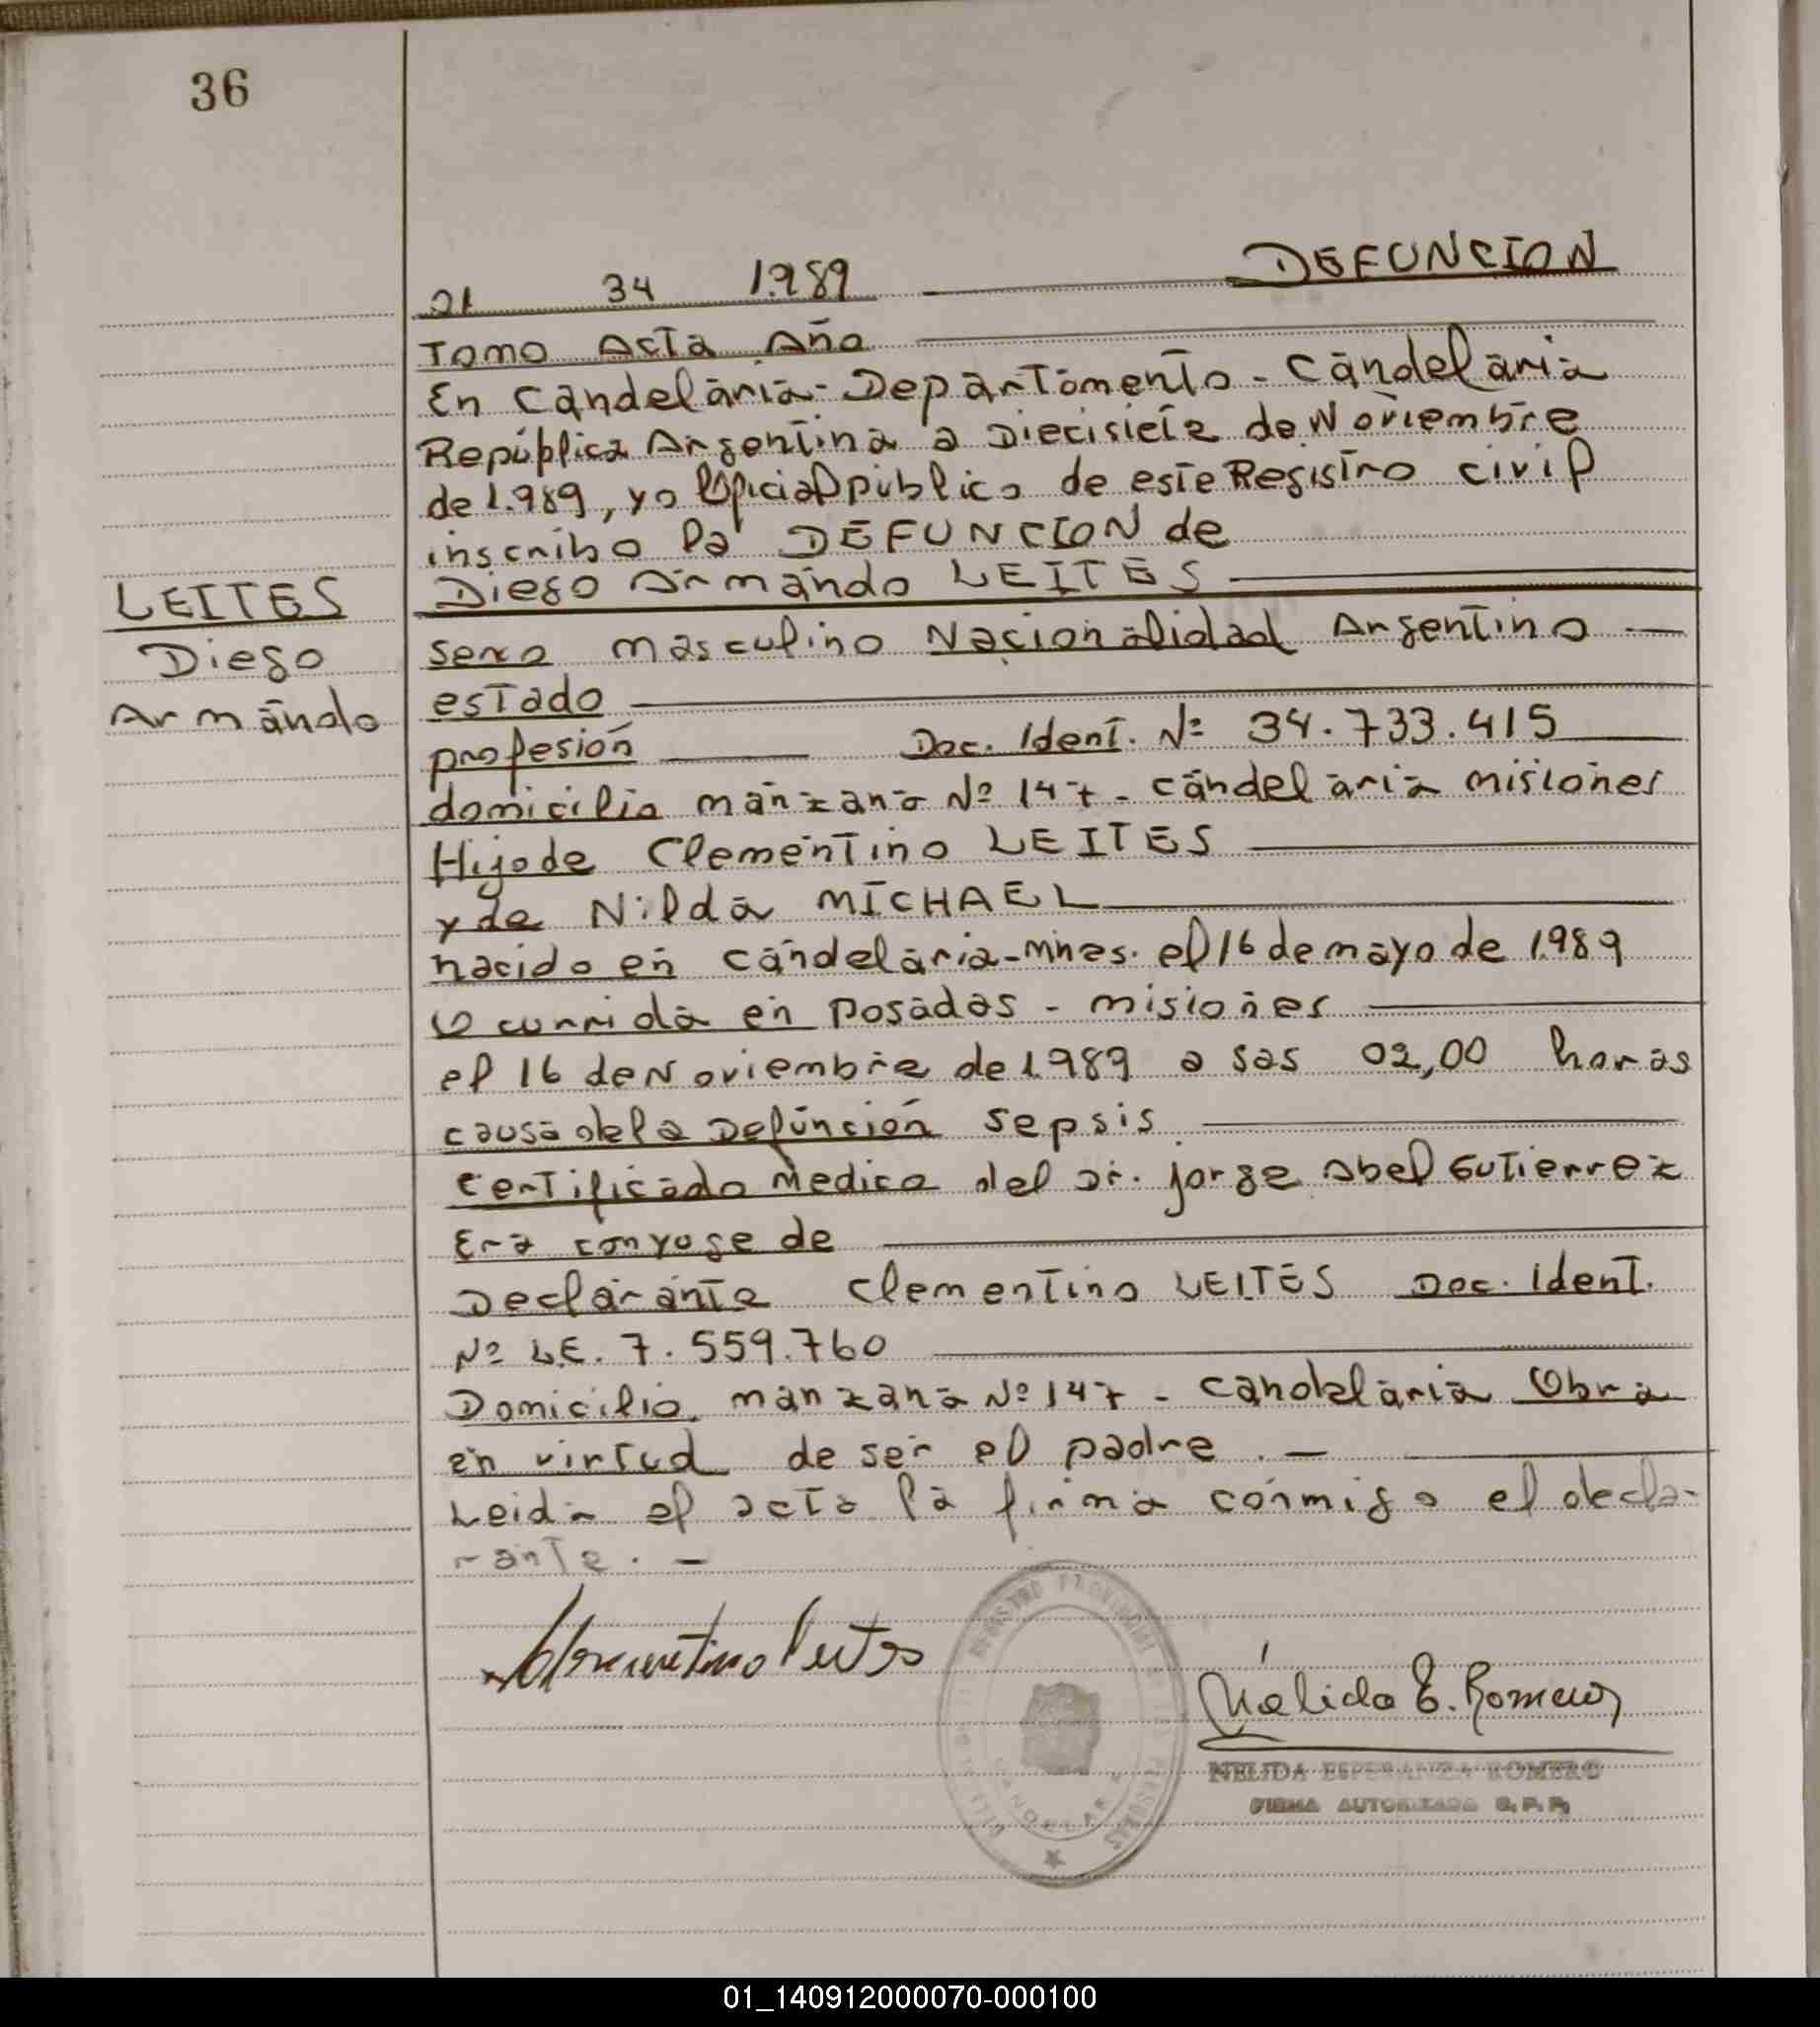 36
DEFUNCION
01 34 1.989
Tomo Acta Año
En Candelaria - Departamento - Candelaria
República Argentina a Diecisiete de Noviembre
de 1.989, yo Oficial público de este Registro civil
inscribo la DEFUNCION de
LEITES
Diego
Armando
Diego Armando LEITES
sexo masculino Nacionalidad Argentino
estado
profesión Doc. Ident. Nº 34.733.415
domicilio manzana Nº 147 - Candelaria misiones
Hijo de Clementino LEITES
y de Nilda MICHAEL
nacido en Candelaria - Mnes. el 16 de mayo de 1.989
Ocurrida en Posadas - misiones
el 16 de Noviembre de 1.989 a sas 02,00 horas
causa de la Defunción sepsis
Certificado Medico del Dr. Jorge Abel Gutierrez
Era conyuge de
Declarante Clementino LEITES Doc. Ident.
Nº L.E. 7.559.760
Domicilio manzana Nº 147 - Candelaria Obra
en virtud de ser el padre . -
Leida el acta la firma conmigo el decla-
rante. -
Clementino Leites
Nélida E. Romero
NELIDA ESPERANZA ROMERO
FIRMA AUTORIZADA R.P.P.
01_140912000070-000100